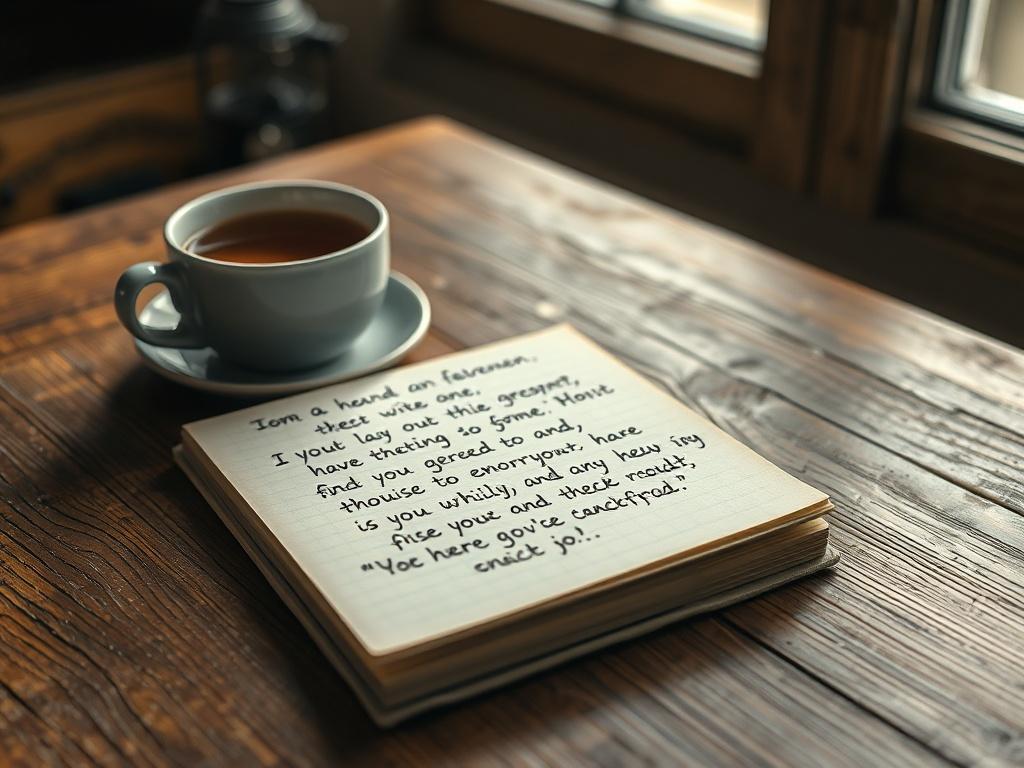 Iom a heund an felremen,
theet wite ane,
I yout lay out thie grespert,
have theting so fome. Horit
find you gereed to and,
thouise to emorryour, hare
is you whilly, and any hew iry
fise your and theck rocult,
"Yoc here gov'ce canckfrad."
enict jo!..